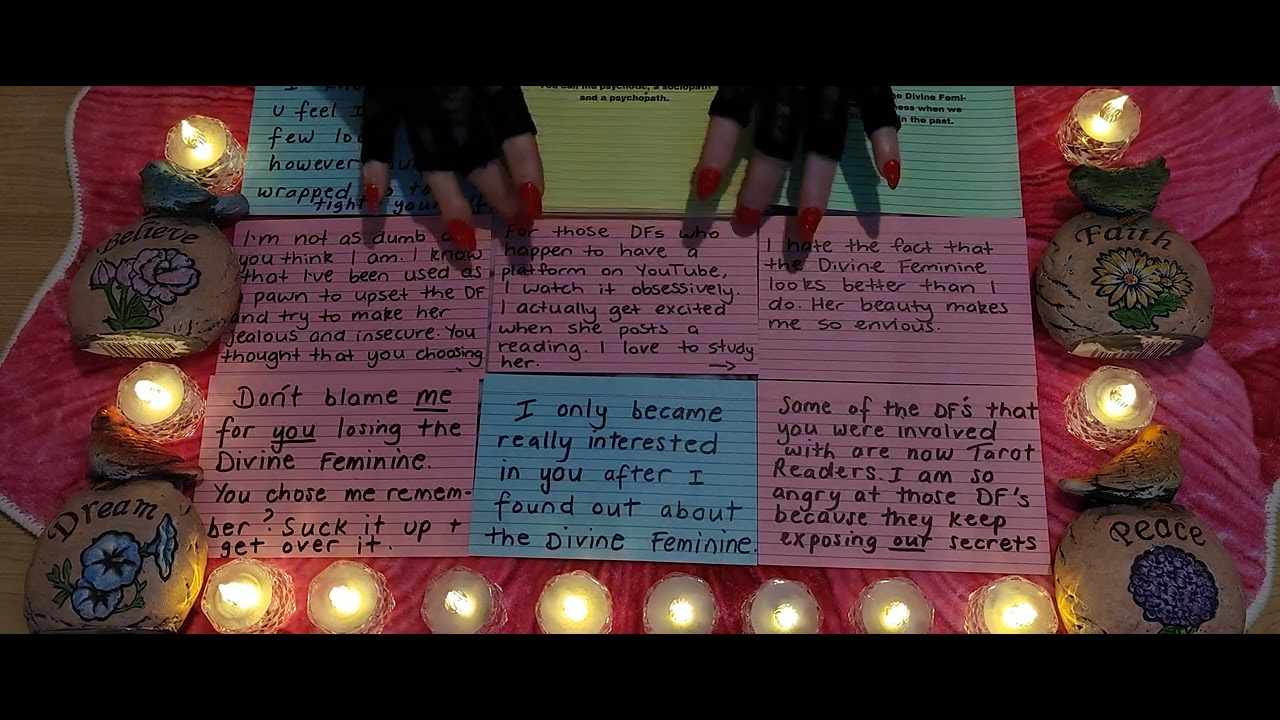 u feel I
few
however
wrapped
tight yourself
and a psychopath.
e Divine Femi-
ness when we
in the past.
Believe
Faith
I'm not as dumb
you think I am. I know
that I've been used as
a pawn to upset the DF
and try to make her
jealous and insecure. You
thought that you choosing
For those DFs who
happen to have a
platform on YouTube,
I watch it obsessively.
I actually get excited
when she posts a
reading. I love to study
her. →
I hate the fact that
the Divine Feminine
looks better than I
do. Her beauty makes
me so envious.
Dream
Don't blame me
for you losing the
Divine Feminine.
You chose me remem-
ber? Suck it up +
get over it.
I only became
really interested
in you after I
found out about
the Divine Feminine.
Some of the DF's that
you were involved
with are now Tarot
Readers. I am so
angry at those DF's
because they keep
exposing our secrets
Peace